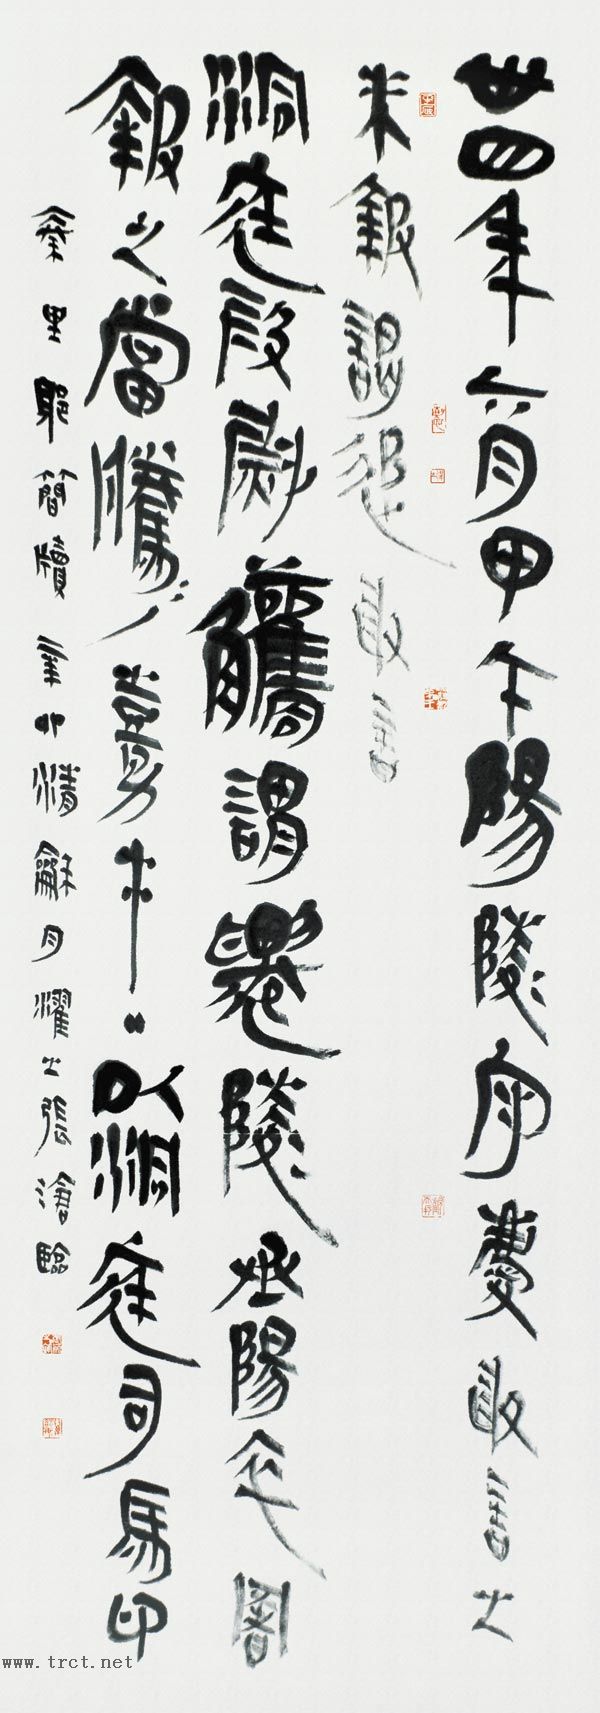 卅四年六月甲午陽陵守慶敢言之
未報謁追敢言
洞庭叚尉觿謂遷陵丞陽署
報之當騰=嘉手·以洞庭司馬印
秦里耶簡牘辛卯清龢月耀之張滄臨
www.trct.net